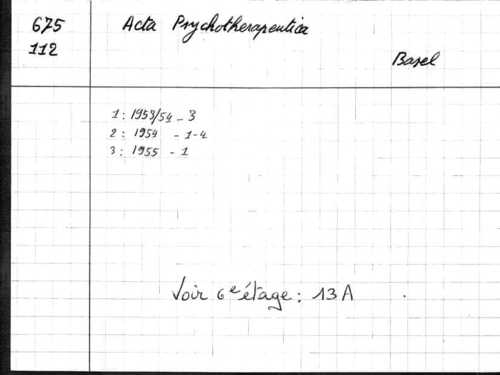 675 Acta Psychotherapeutica
112
Basel
1: 1953/54 - 3
2: 1954 - 1-4
3: 1955 - 1
Voir 6e étage: 13A